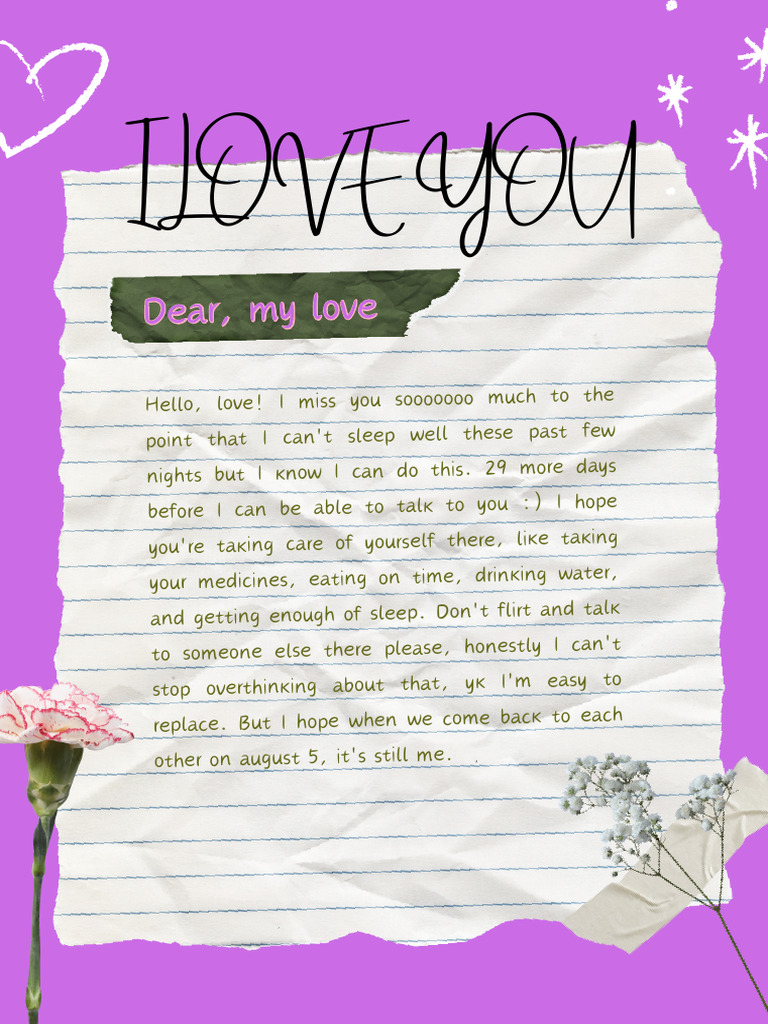 I LOVE YOU
Dear, my love
Hello, love! I miss you sooooooo much to the
point that I can't sleep well these past few
nights but I know I can do this. 29 more days
before I can be able to talk to you :) I hope
you're taking care of yourself there, like taking
your medicines, eating on time, drinking water,
and getting enough of sleep. Don't flirt and talk
to someone else there please, honestly I can't
stop overthinking about that, yk I'm easy to
replace. But I hope when we come back to each
other on august 5, it's still me.